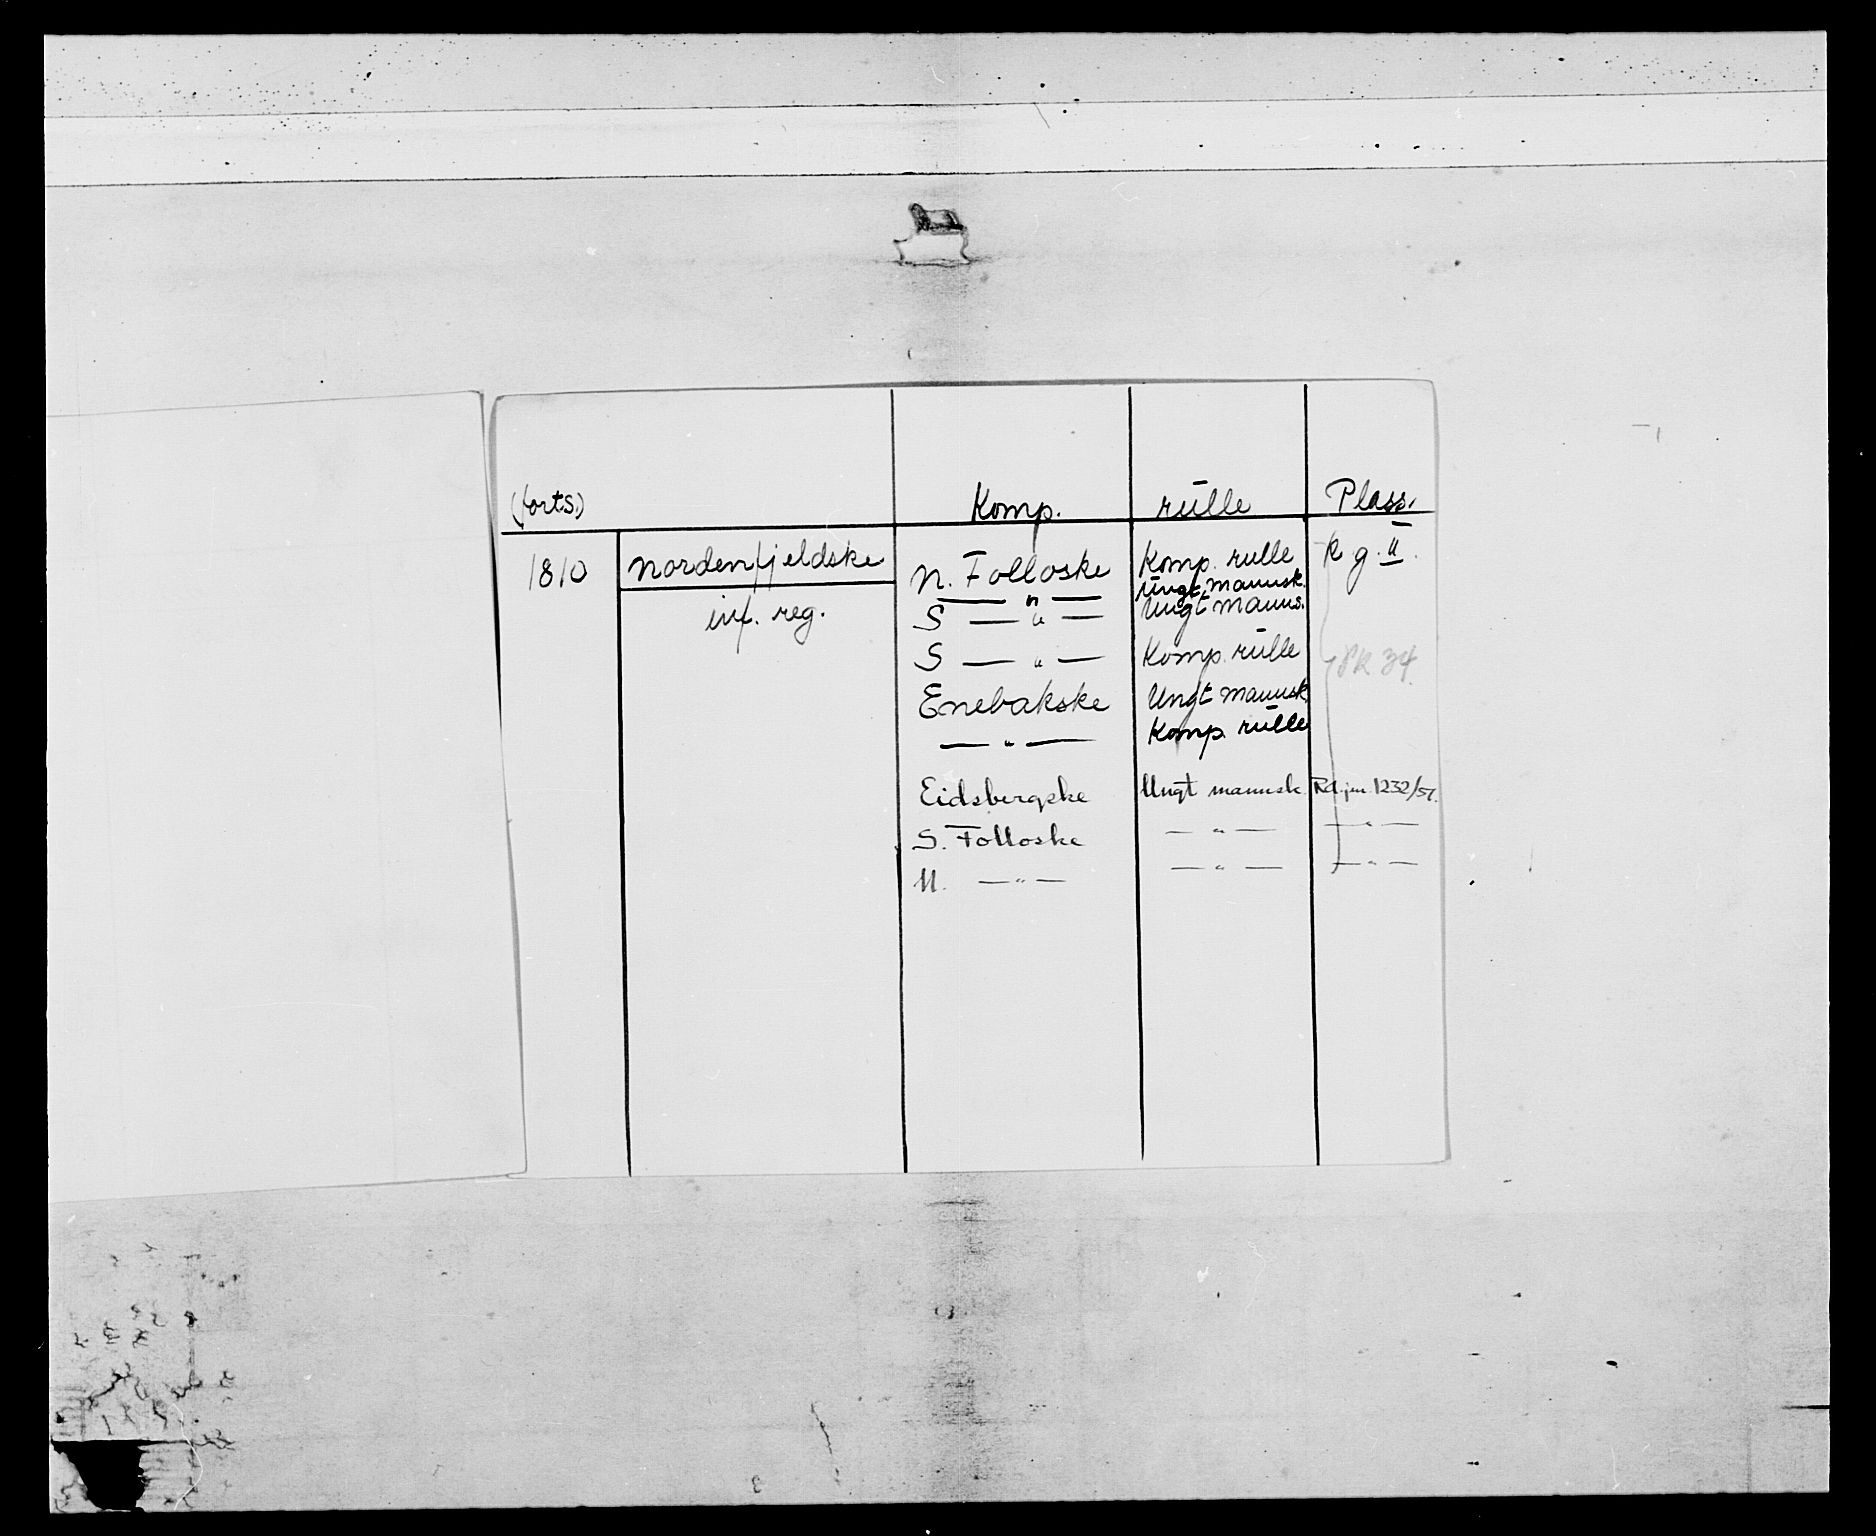 (forts.) Komp. rulle Plass.
1810 Nordenfjeldske N. Folloske Komp. rulle R g. II.
— " — Ungt mannsk.
inf. reg. S — " — Ungt manns.
S — " — Komp. rulle PK 34
Enebakske Ungt mannsk.
— " — Komp. rulle
Eidsbergske Ungt mannsk. Rd. jnr. 1232/51.
S. Folloske — " — — " —
N. — " — — " — — " —